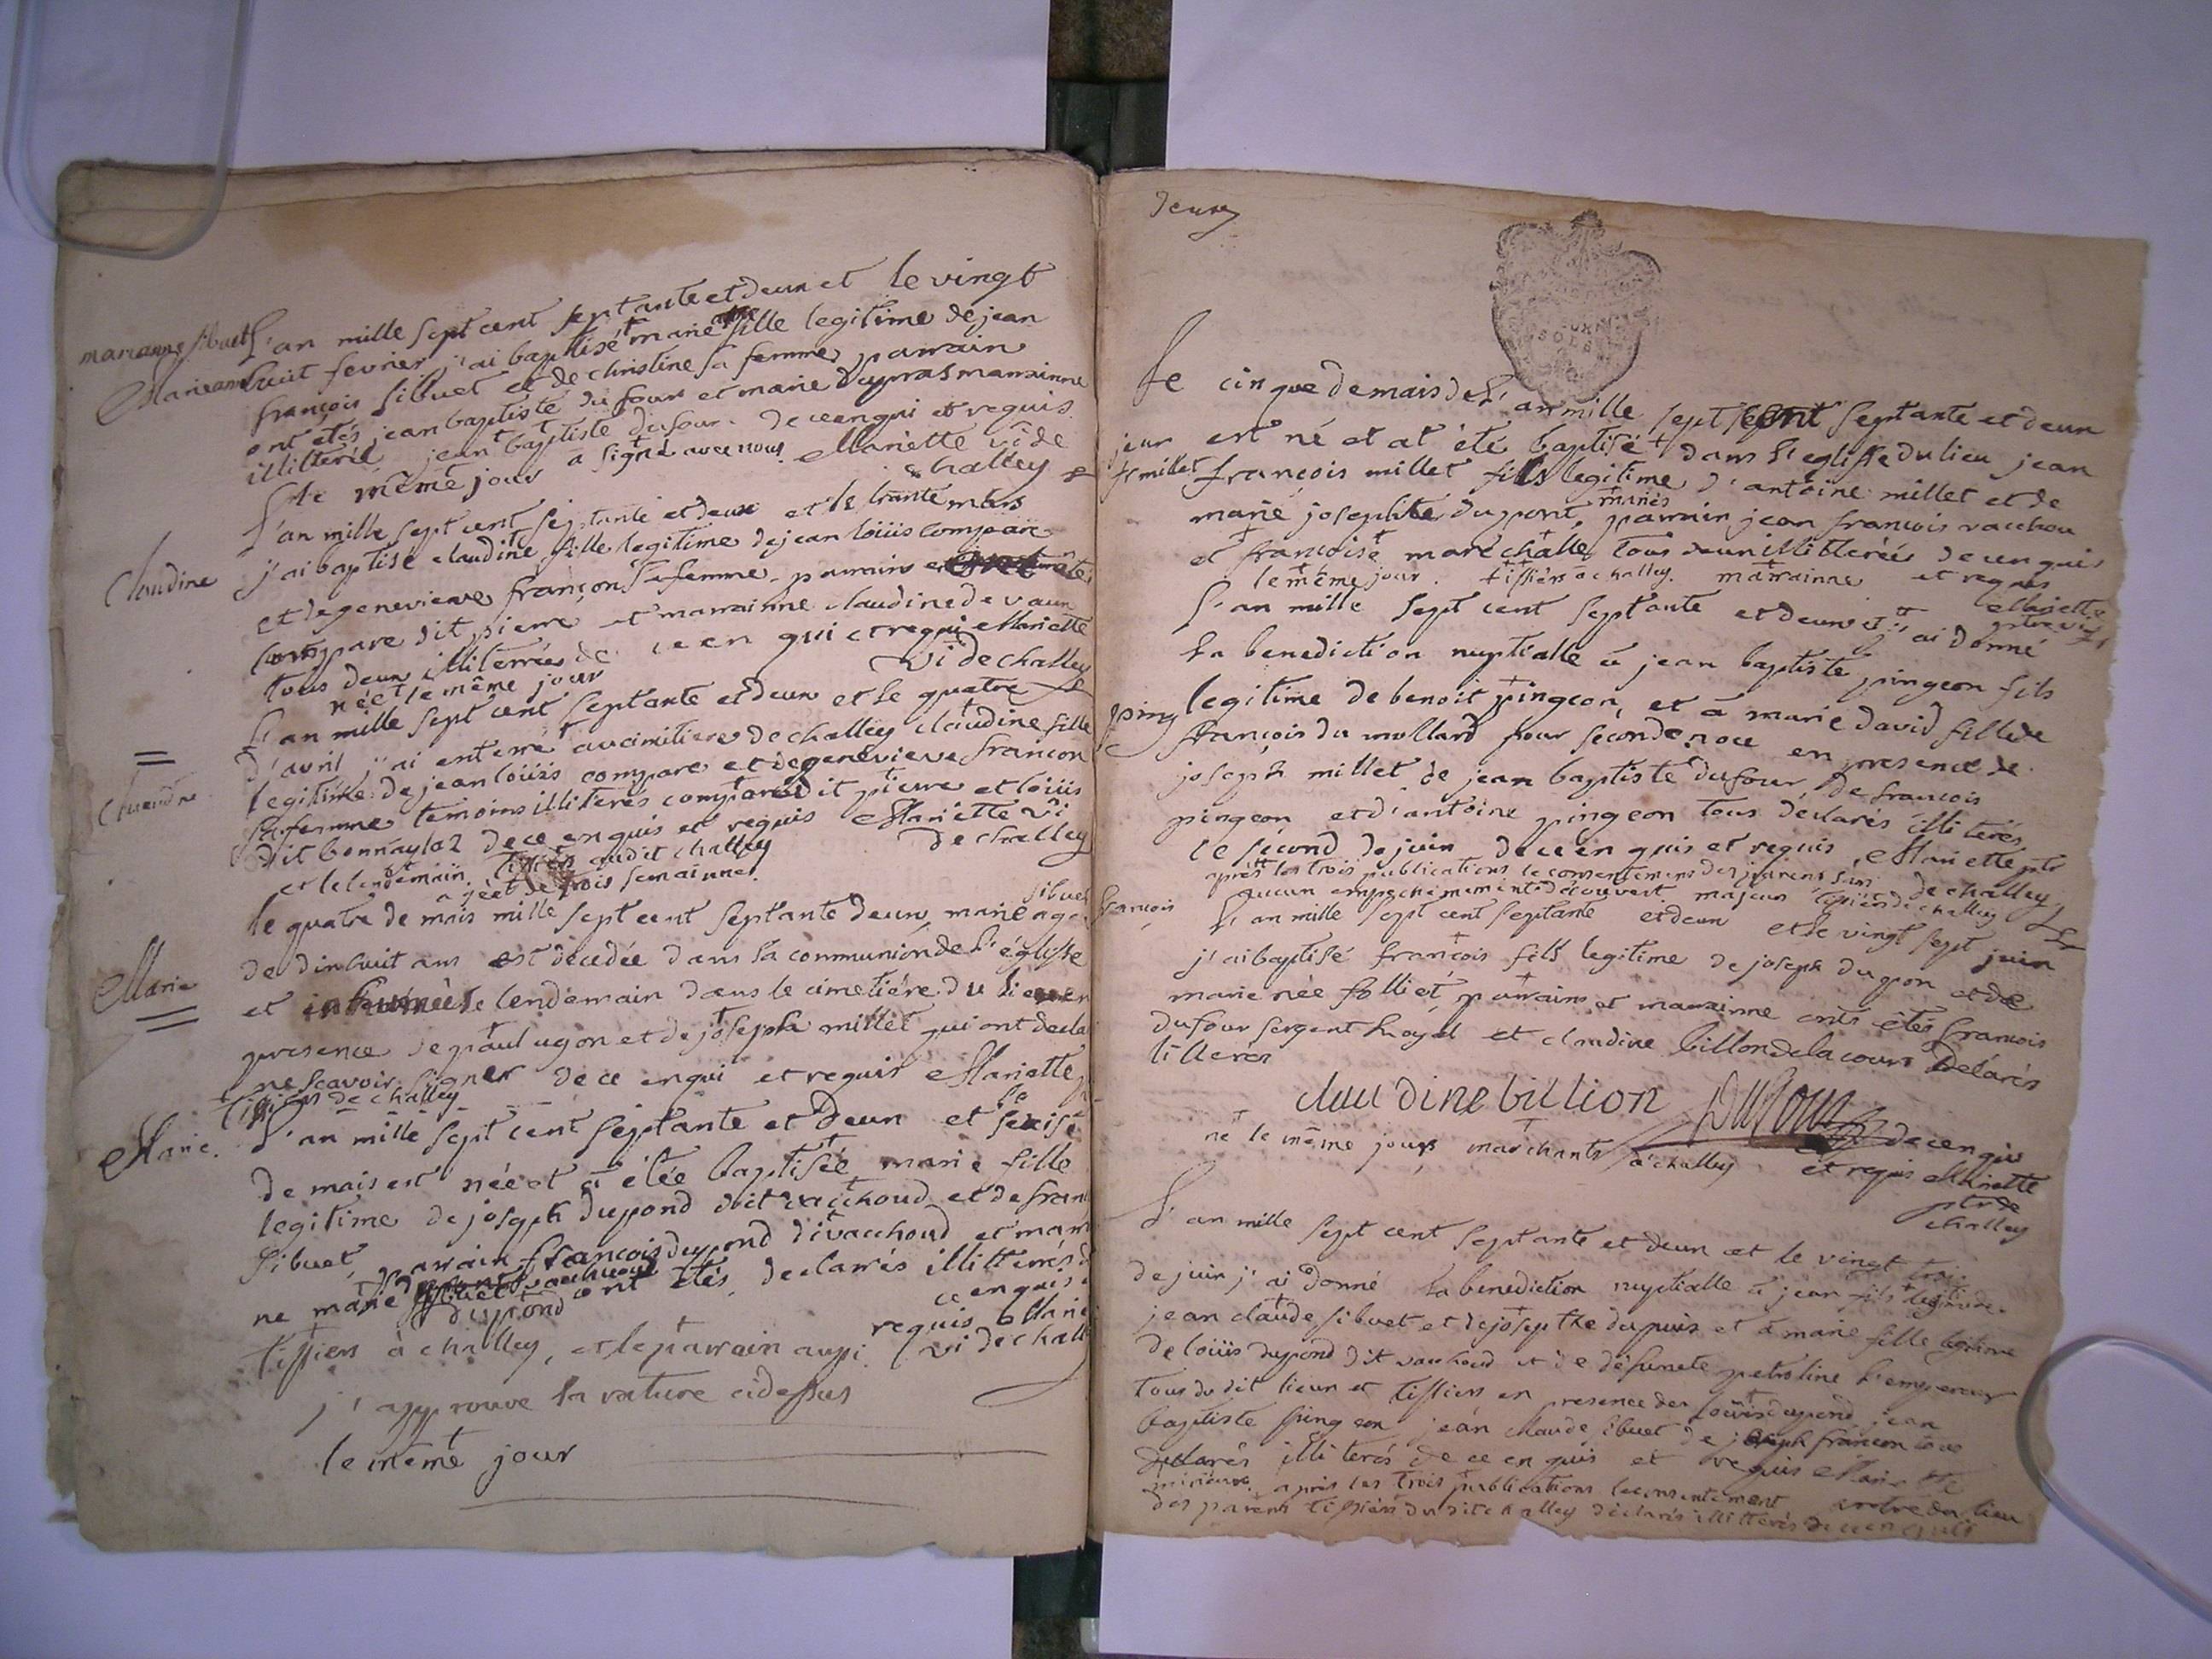 marianne sibuet L'an mille sept cent septante et deux et le vingt
Marieanne huit fevrier j'ai baptisé marie anne fille legitime de jean
françois sibuet et de christine sa femme parrain
ont étés jean baptiste du four et marie dupras marrainne
illitteré jean baptiste dufour. de ce enqui et requis
Le même jour a signé avec nous Mariette vi de
challey
L'an mille sept cent septante et deux et le trante mars
Claudine j'ai baptisé claudine fille legitime de jean loüis compare
et de genevieve françon sa femme. parrain
compare dit pierre et marrainne claudine de vaux
tous deux illiterrés de ce en qui et requi Mariette
née le même jour vi de challey
L'an mille sept cent septante et deux et le quatre
d'avril j'ai enterré au cimitiere de challey claudine fille
legitime de jean loüis compare et de genevieve françon
sa femme temoins illiterés compare dit pierre et loüis
dit bonnaylaz de ce enquis et requis Mariette vi
et le lendemain audit challey de challey
agée de trois semainnes
le quatre de mais mille sept cent septante deux, marie sibuet age
Marie de dixhuit ans est décédée dans la communion de l'église
et inhumée le lendemain dans le cimetiére du lieu en
presence de paul ugon et de joseph millet qui ont decla
ne scavoir signer de ce enqui et requis Mariette
tissiers de challey
Marie. L'an mille sept cent septante et deux et le seise
de mais est née et a étée baptisée marie fille
legitime de joseph dupond dit vacchoud et de fran
sibuet, parrain françois dupond dit vacchoud et marr
ne marie dupond ont étés declarés illitterés
ce enquis
requis Marie
tissiers à challey, et le parrain aussi vi de chall
j'approuve la rature cidessus
le même jour
deux
le cinque de mais de l'an mille sept cent septante et deux
jean est né et at été baptisé dans l'eglisse du lieu jean
f millet françois millet fils legitime d'antoine millet et de
mariés
marie josephte dupont, parrain jean françois vacchou
et françoise marechalle tous deux illitterés de ce enquis
le même jour. tissiers à challey. marrainne et requis
Mariette
L'an mille sept cent septante et deux et j'ai donné
la benediction nuptialle à jean baptiste pingeon fils
ping legitime de benoit pingeon, et à marie david fille de
françois du mollard pour seconde noce en presence de
joseph millet de jean baptiste dufour, de françois
pingeon et d'antoine pingeon tous declarés illiterés,
le second de juin de ce en quis et requis Mariette ptr
après les trois publications le consentement des parens sans de challey
aucun empechement decouvert. majeur tissiers de challey
françois L'an mille sept cent septante et deux et le vingt sept juin
j'ai baptisé françois fils legitime de joseph dupon et de
marie née folliet, parrains et marrainne onts étés françois
dufour sergent royal et claudine billon de la cour declarés
litterés
claudine billion Dufour
né le même jour marchants à challey de ce en qui
et requis Mariette
ptr de
challey
L'an mille sept cent septante et deux et le vingt trois
de juin j'ai donné la benediction nuptialle à jean fils legitime de
jean claude sibuet et de josepthe dupuis et à marie fille legitime
de loüis dupond dit vachoud et de defuncte petroline l'empereur
tous du dit lieux et tissiers en presence de loüis dupond jean
baptiste pingeon jean claude sibuet de joseph françon tous
declarés illiterés de ce en quis et requis Mariette
mineure. après les trois publications le consentement
des parens tissiers du dit challey declarés illitterés de ce en quis